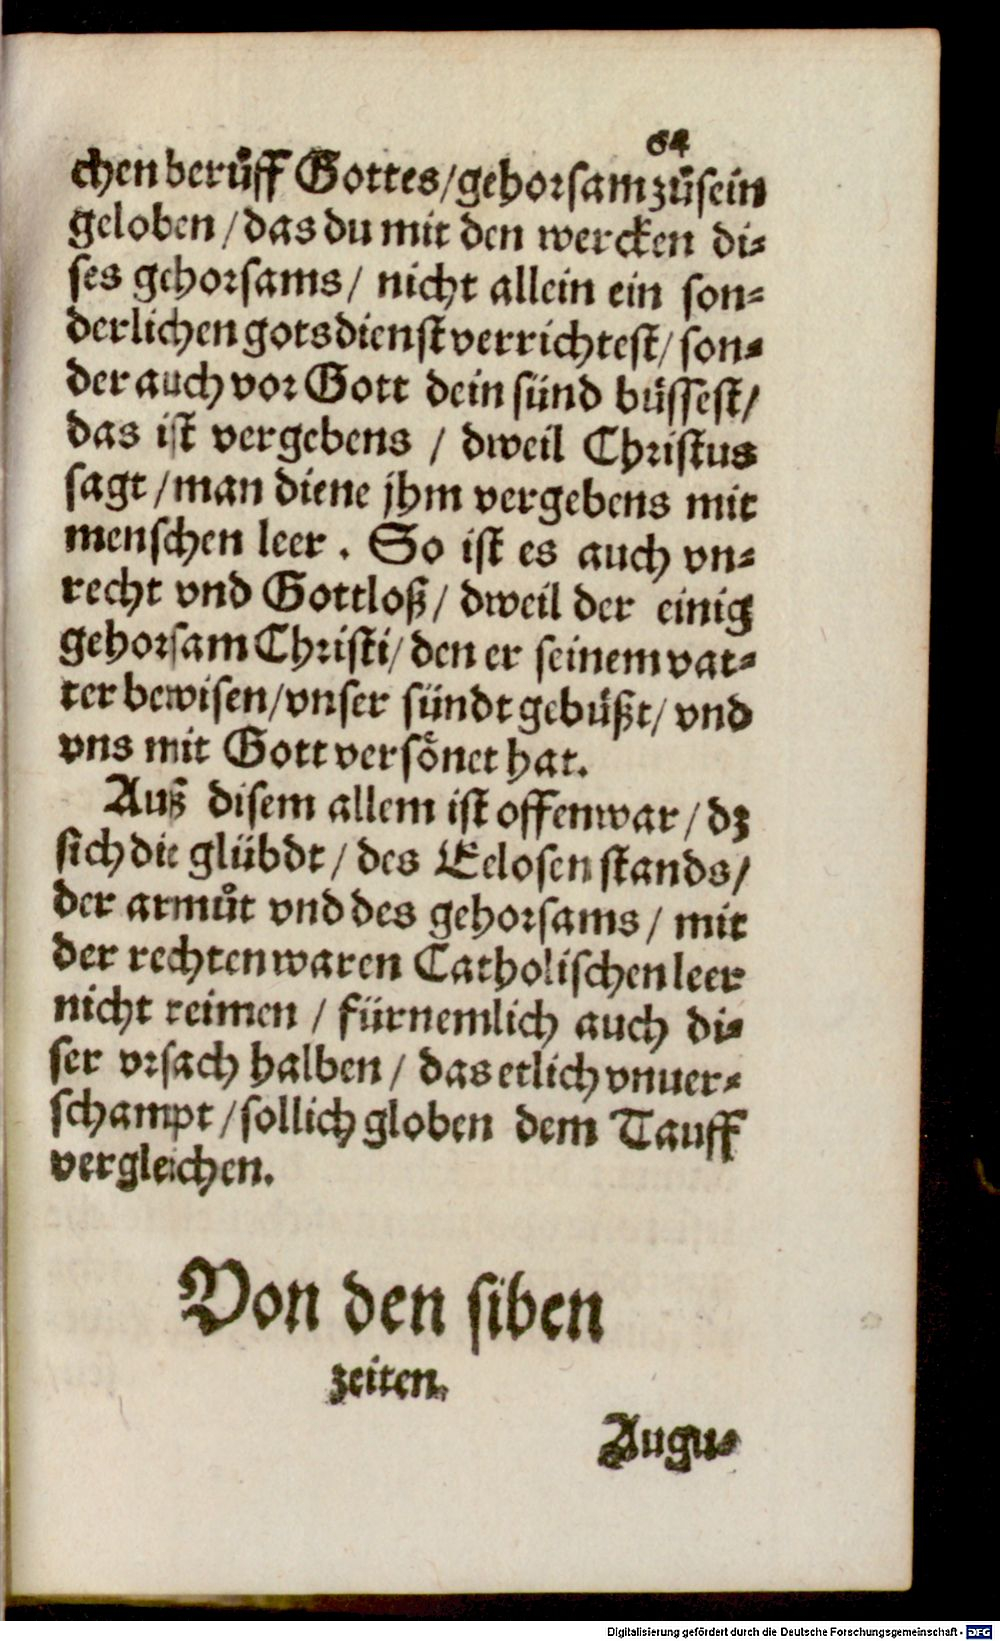 64
chen berůff Gottes/gehorsam zůsein
geloben/das du mit den wercken di⸗
ses gehorsams/ nicht allein ein son⸗
derlichen gotsdienst verrichtest/ son⸗
der auch vor Gott dein sünd büssest/
das ist vergebens / dweil Christus
sagt/man diene jhm vergebens mit
menschen leer. So ist es auch vn⸗
recht vnd Gottloß/ dweil der einig
gehorsam Christi/ den er seinem vat⸗
ter bewisen/vnser sündt gebüßt/ vnd
vns mit Gott versönet hat.
Auß disem allem ist offenwar/ dz
sich die glübdt/ des Eelosen stands/
der armůt vnd des gehorsams/ mit
der rechten waren Catholischen leer
nicht reimen / fürnemlich auch di⸗
ser vrsach halben/ das etlich vnuer⸗
schampt/sollich globen dem Tauff
vergleichen.
Von den siben
zeiten.
Augu⸗
Digitalisierung gefördert durch die Deutsche Forschungsgemeinschaft - DFG